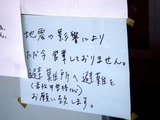 地震の影響により
ただ今営業しておりません。
避難所へ避難を
お願い致します。